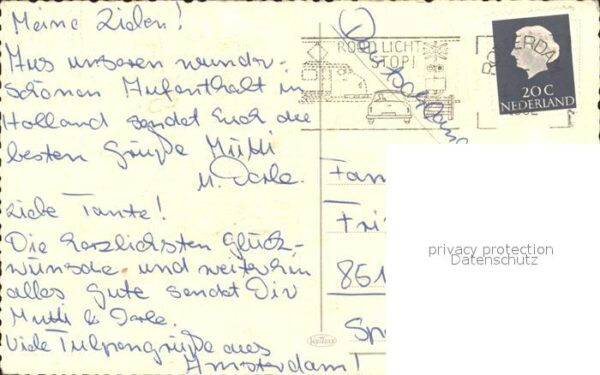 Meine Lieben!
Aus unserem wunder-
schönen Aufenthalt in
Holland sendet Euch die
besten Grüße Mutti
u.
Liebe Tante!
Die herzlichsten Glück-
wünsche und weiterhin
alles Gute sendet Dir
Mutti &
Viele Tulpengrüße aus
Amsterdam!
ROOD LICHT
STOP!
ROTTERDA
20 C
NEDERLAND
Deutschland
Fam
Fri
851
privacy protection
Datenschutz